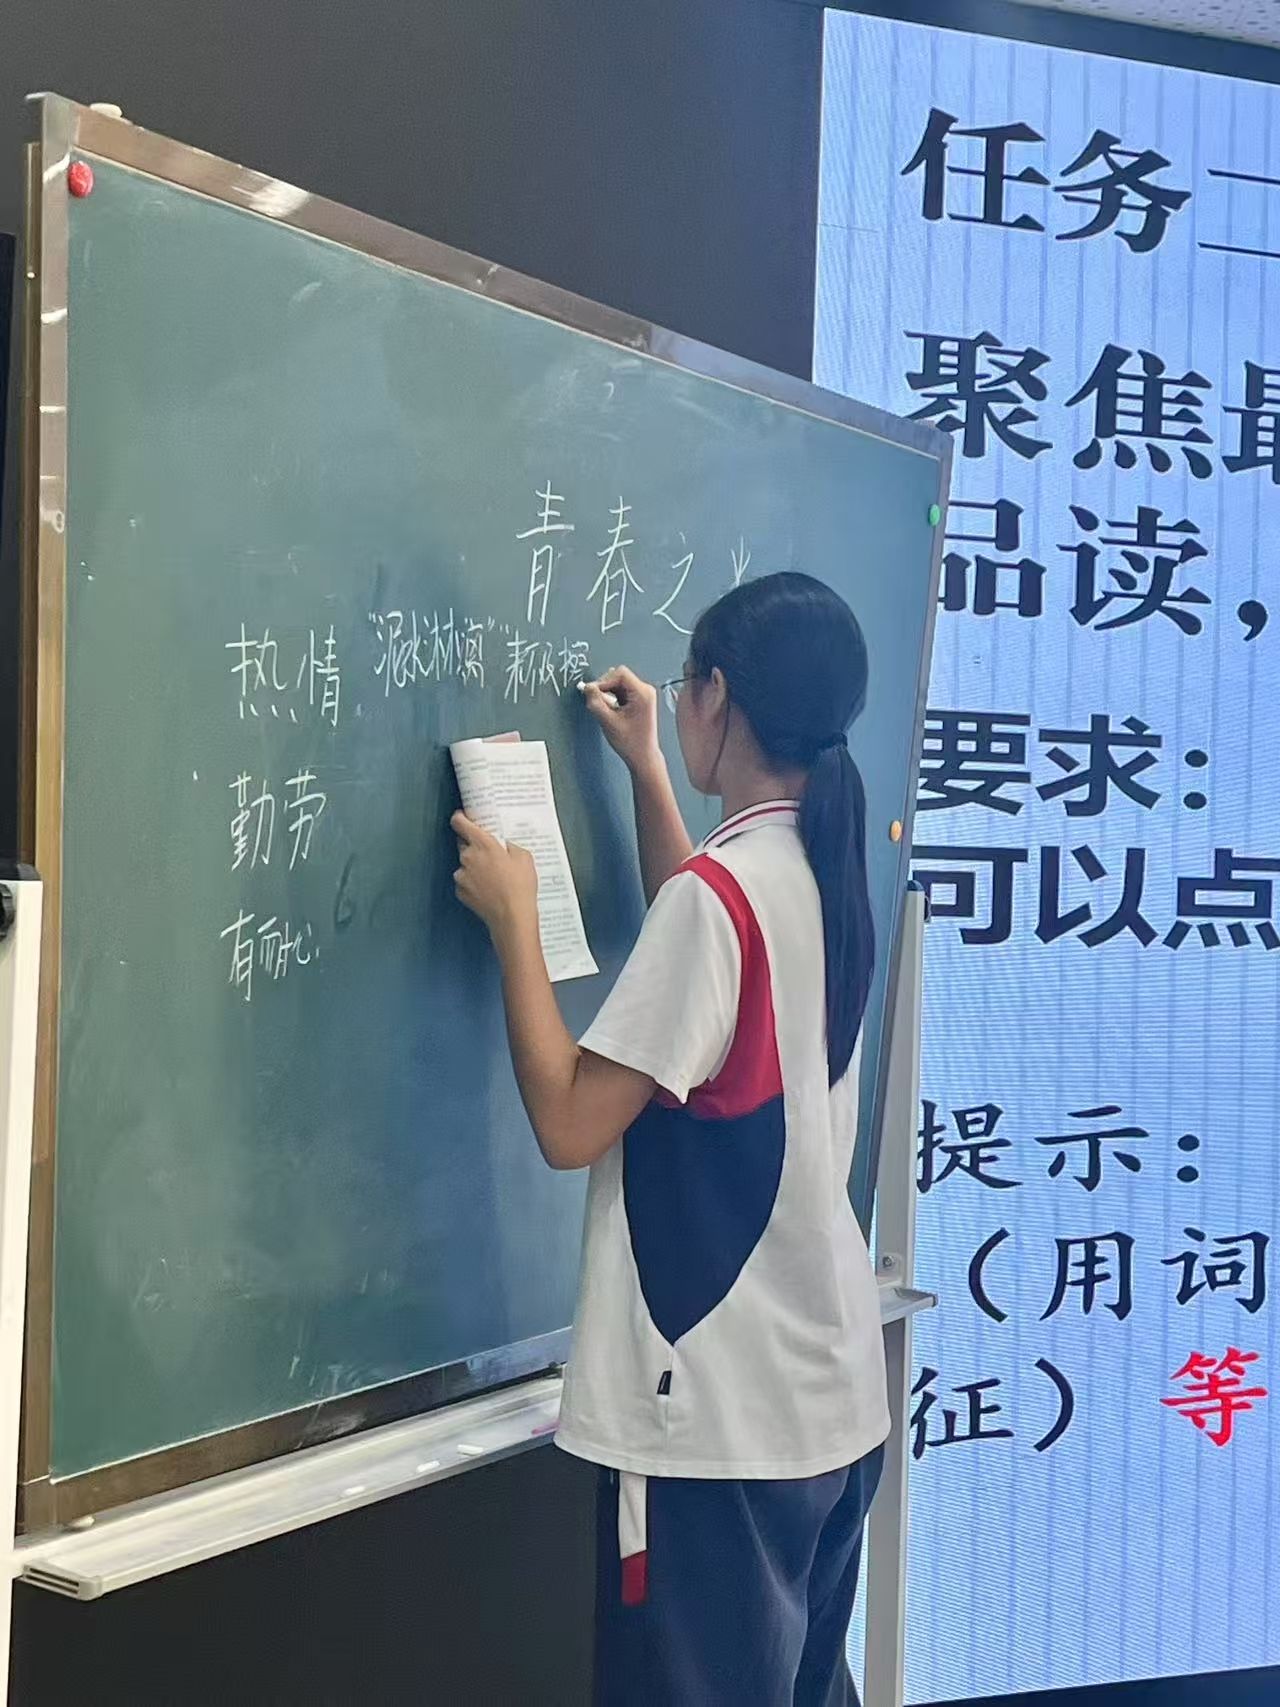 青春之
热情 "泥水淋漓" "来不及擦
勤劳
有耐心.
任务二
聚焦最
品读，
要求：
可以点
提示：
（用词
征）等